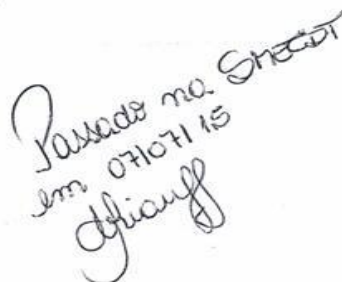 Passado na SMECDT
em 07/07/15